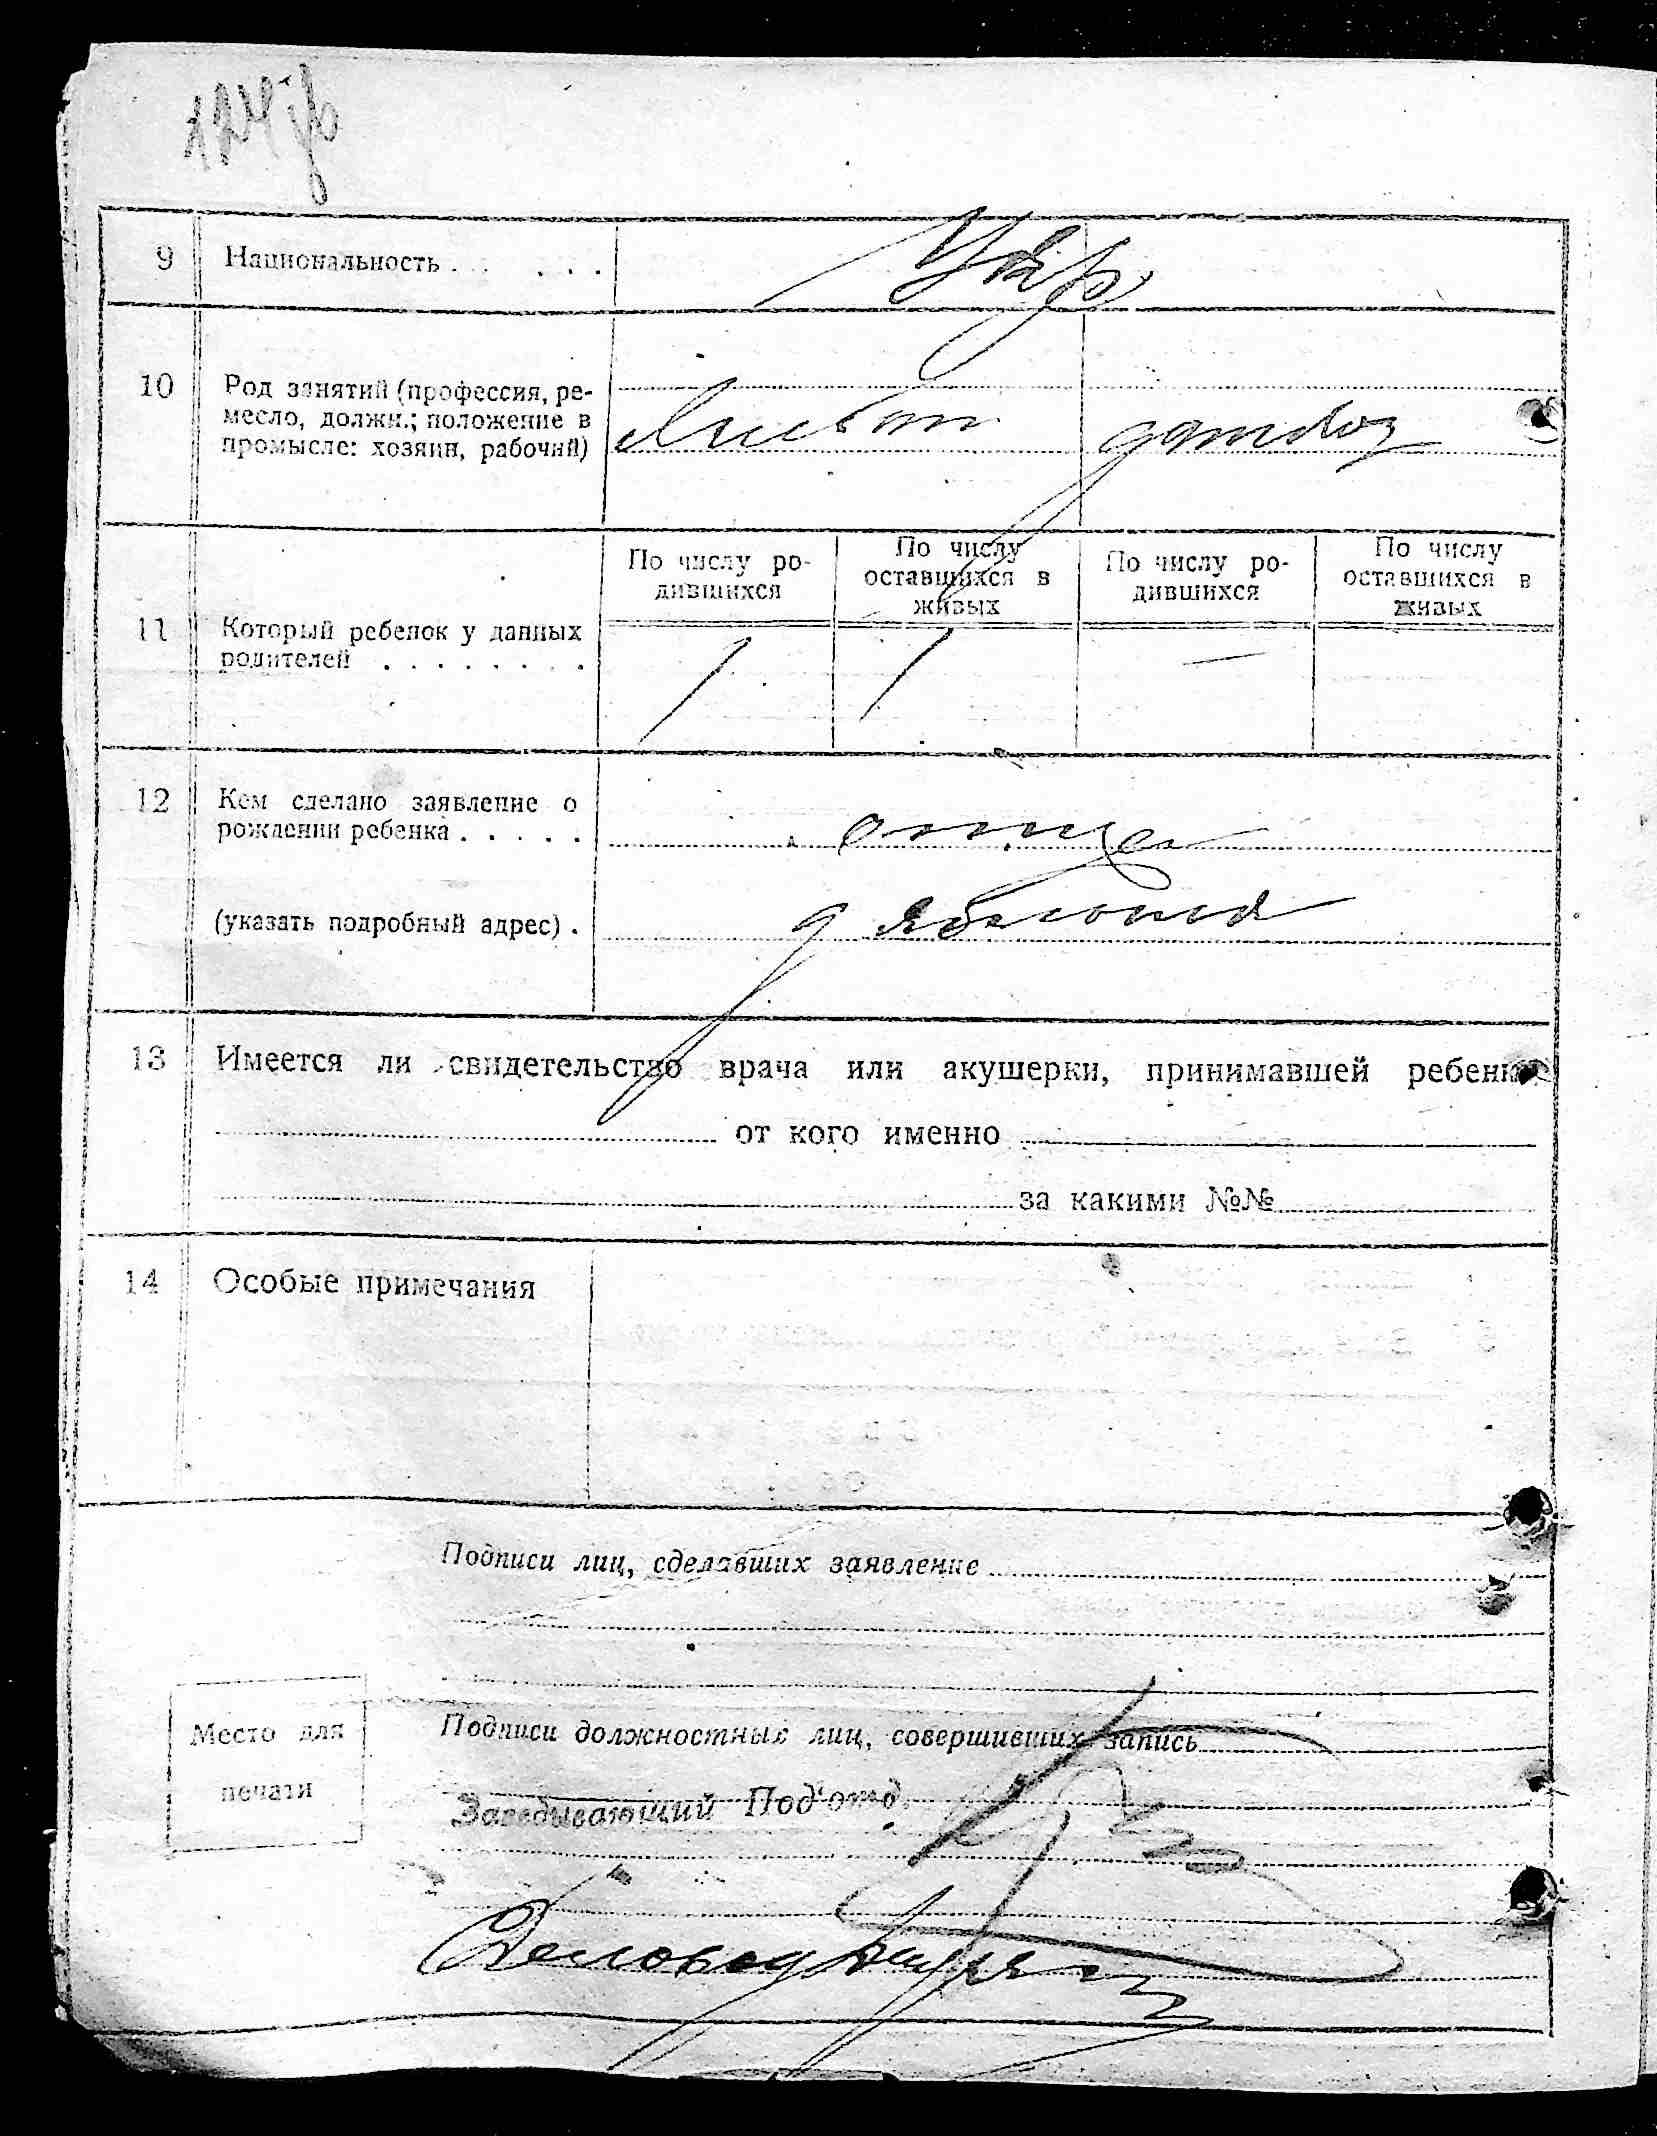 9 Национальность . . . . . . Укр
10 Род занятий (профессия, ре-
месло, должн.; положение в
промысле: хозяин, рабочий)
домхоз
По числу ро-
дившихся
По числу
оставшихся в
живых
По числу ро-
дившихся
По числу
оставшихся в
живых
11 Который ребенок у данных
родителей . . . . . . . .
1 1 —
12 Кем сделано заявление о
рождении ребенка . . . . . отцем
(указать подробный адрес) .
13 Имеется ли свидетельство врача или акушерки, принимавшей ребенка
от кого именно
за какими №№
14 Особые примечания
Подписи лиц, сделавших заявление
Место для
печати
Подписи должностных лиц, совершивших запись
Заведывающий Под'отд.
Деловод